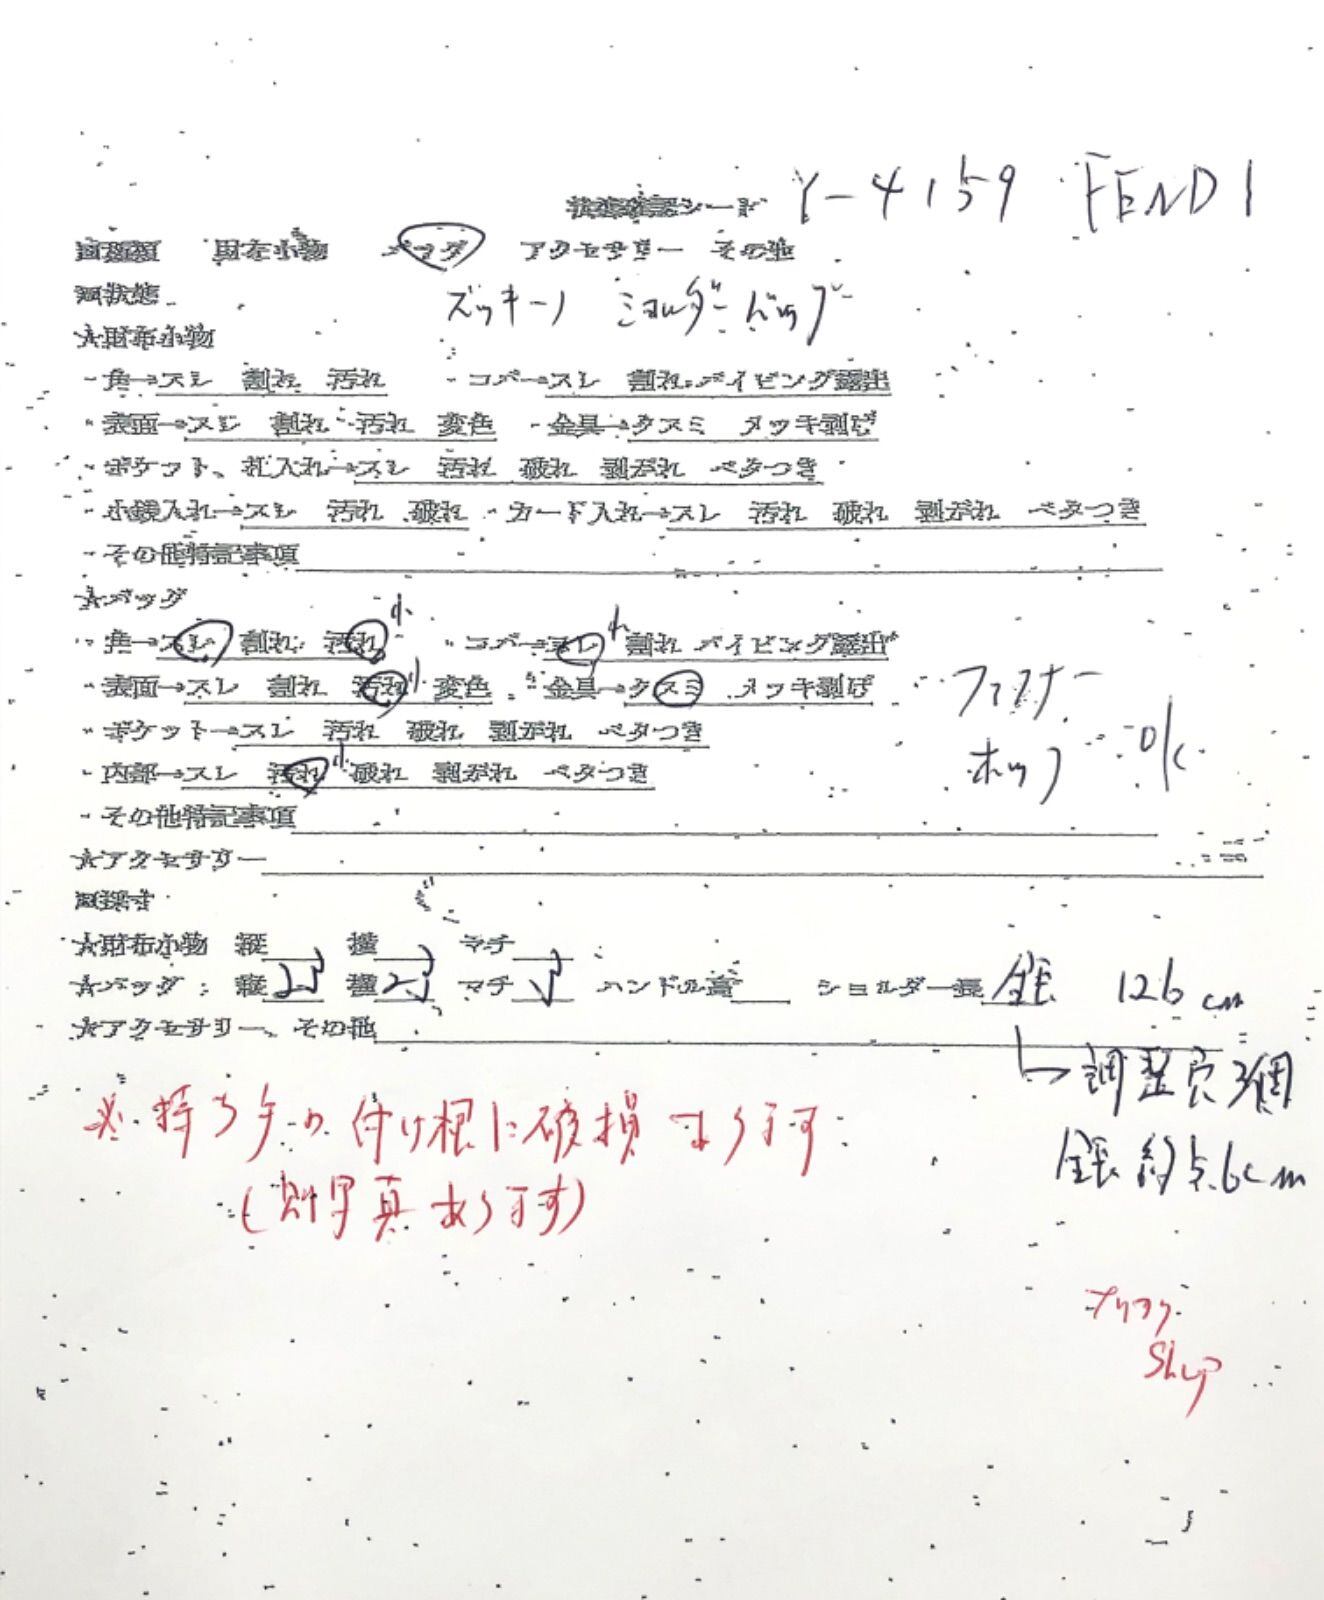 状態確認シート Y-4159 FENDI
■種類 財布小物 バッグ アクセサリー その他
■状態 ズッキーノ ショルダーバッグ
★財布小物
・角→スレ 割れ 汚れ ・コバ→スレ 割れ パイピング露出
・表面→スレ 割れ 汚れ 変色 ・金具→クスミ メッキ剥げ
・ポケット、札入れ→スレ 汚れ 破れ 剥がれ ベタつき
・小銭入れ→スレ 汚れ 破れ ・カード入れ→スレ 汚れ 破れ 剥がれ ベタつき
・その他特記事項
★バッグ
・角→スレ 割れ 汚れ小 ・コバ→スレ小 割れ パイピング露出
・表面→スレ 割れ 汚れ小 変色 ・金具→クスミ メッキ剥げ ファスナー
・ポケット→スレ 汚れ 破れ 剥がれ ベタつき ok
・内部→スレ 汚れ小 破れ 剥がれ ベタつき ホック
・その他特記事項
★アクセサリー
■採寸
★財布小物 縦 横 マチ
★バッグ:縦25 横25 マチ5 ハンドル高 ショルダー長 全長 126cm
★アクセサリー、その他
調整穴3個
※持ち手の付け根に破損あります 全長約5.6cm
(別写真あります)
Shop